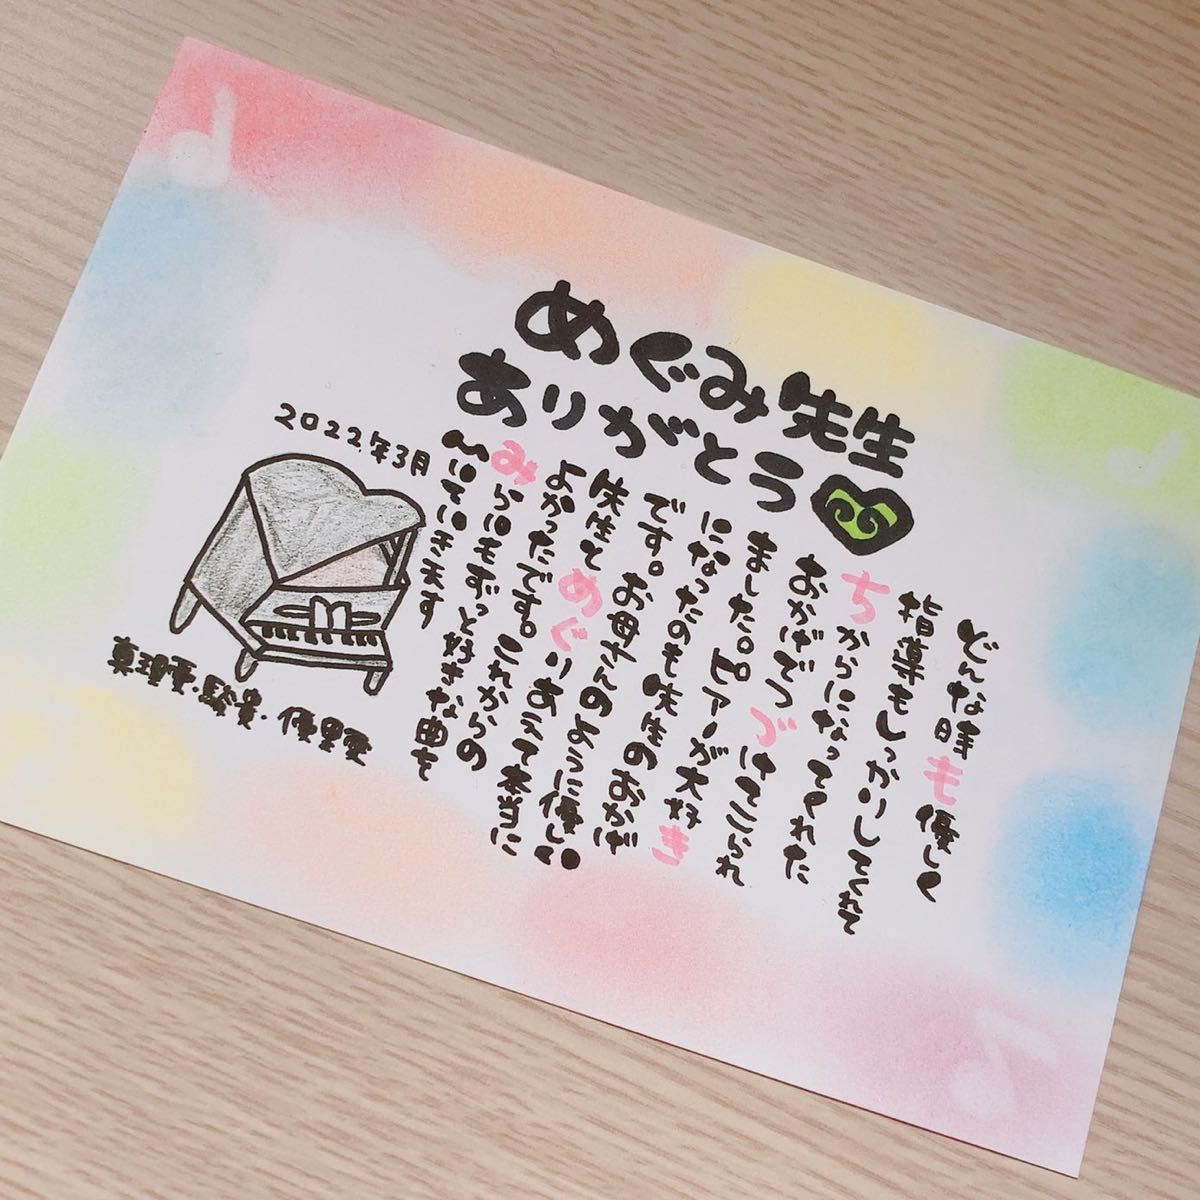 めぐみ先生
ありがとう
どんな時も優しく
指導もしっかりしてくれて
ちからになってくれた
おかげでつづけてこられ
ました。ピアノが大好き
になったのも先生のおかげ
です。お母さんのように優しい
先生とめぐりあえて本当に
よかったです。これからの
みらいもずっと好きな曲を
ひいていきます
2022年3月
真理亜・駿貴・優里亜